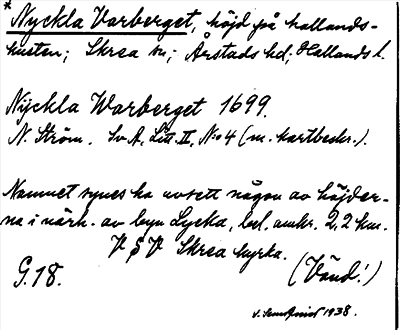 * Nyckla Varberget, höjd på hallands-
kusten; Skrea sn; Årstads hd; Hallands l.
Nyckla Warberget 1699.
N. Ström. Sv. A. Litt. II, No 4 (m. kartbeskr.).
Namnet synes ha avsett någon av höjder-
na i närh. av byn Lycka, bel. omkr. 2,2 km.
V S V Skrea kyrka.
G. 18. (Vänd!)
1938.